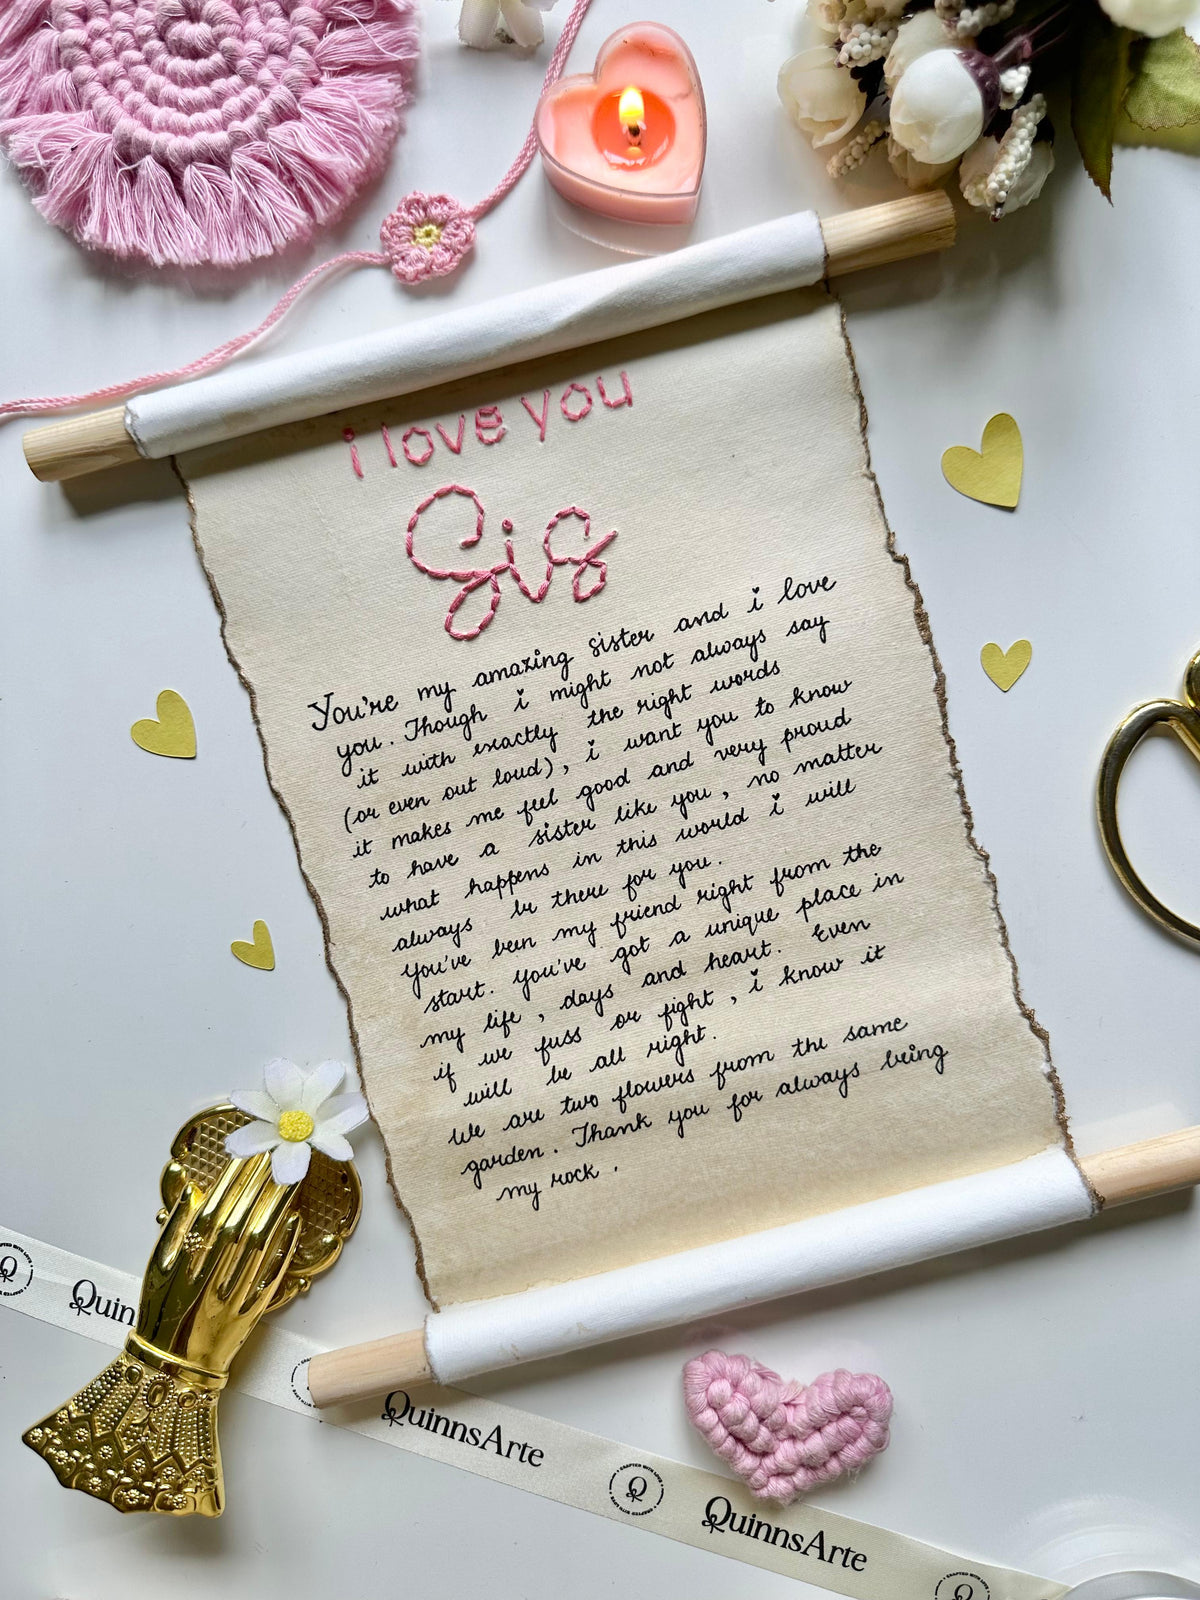 i love you
Sis
You're my amazing sister and i love
you. Though i might not always say
it with exactly the right words
(or even out loud), i want you to know
it makes me feel good and very proud
to have a sister like you, no matter
what happens in this world i will
always be there for you.
You've been my friend right from the
start. You've got a unique place in
my life, days and heart. Even
if we fuss or fight, i know it
will be all right.
We are two flowers from the same
garden. Thank you for always being
my rock.
Quin
QuinnsArte
CRAFTED WITH LOVE
QuinnsArte